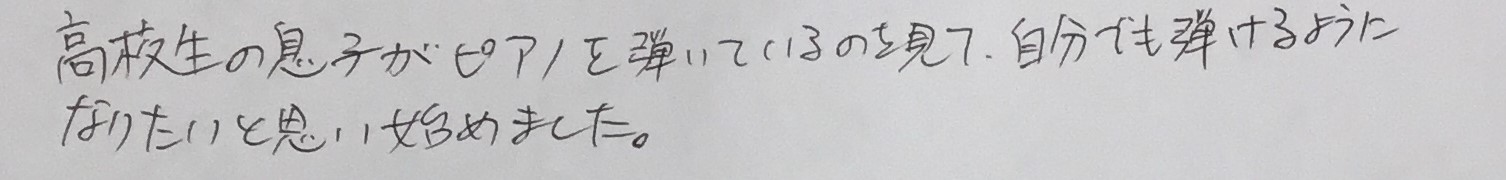 高校生の息子がピアノを弾いているのを見て、自分でも弾けるように
なりたいと思い始めました。